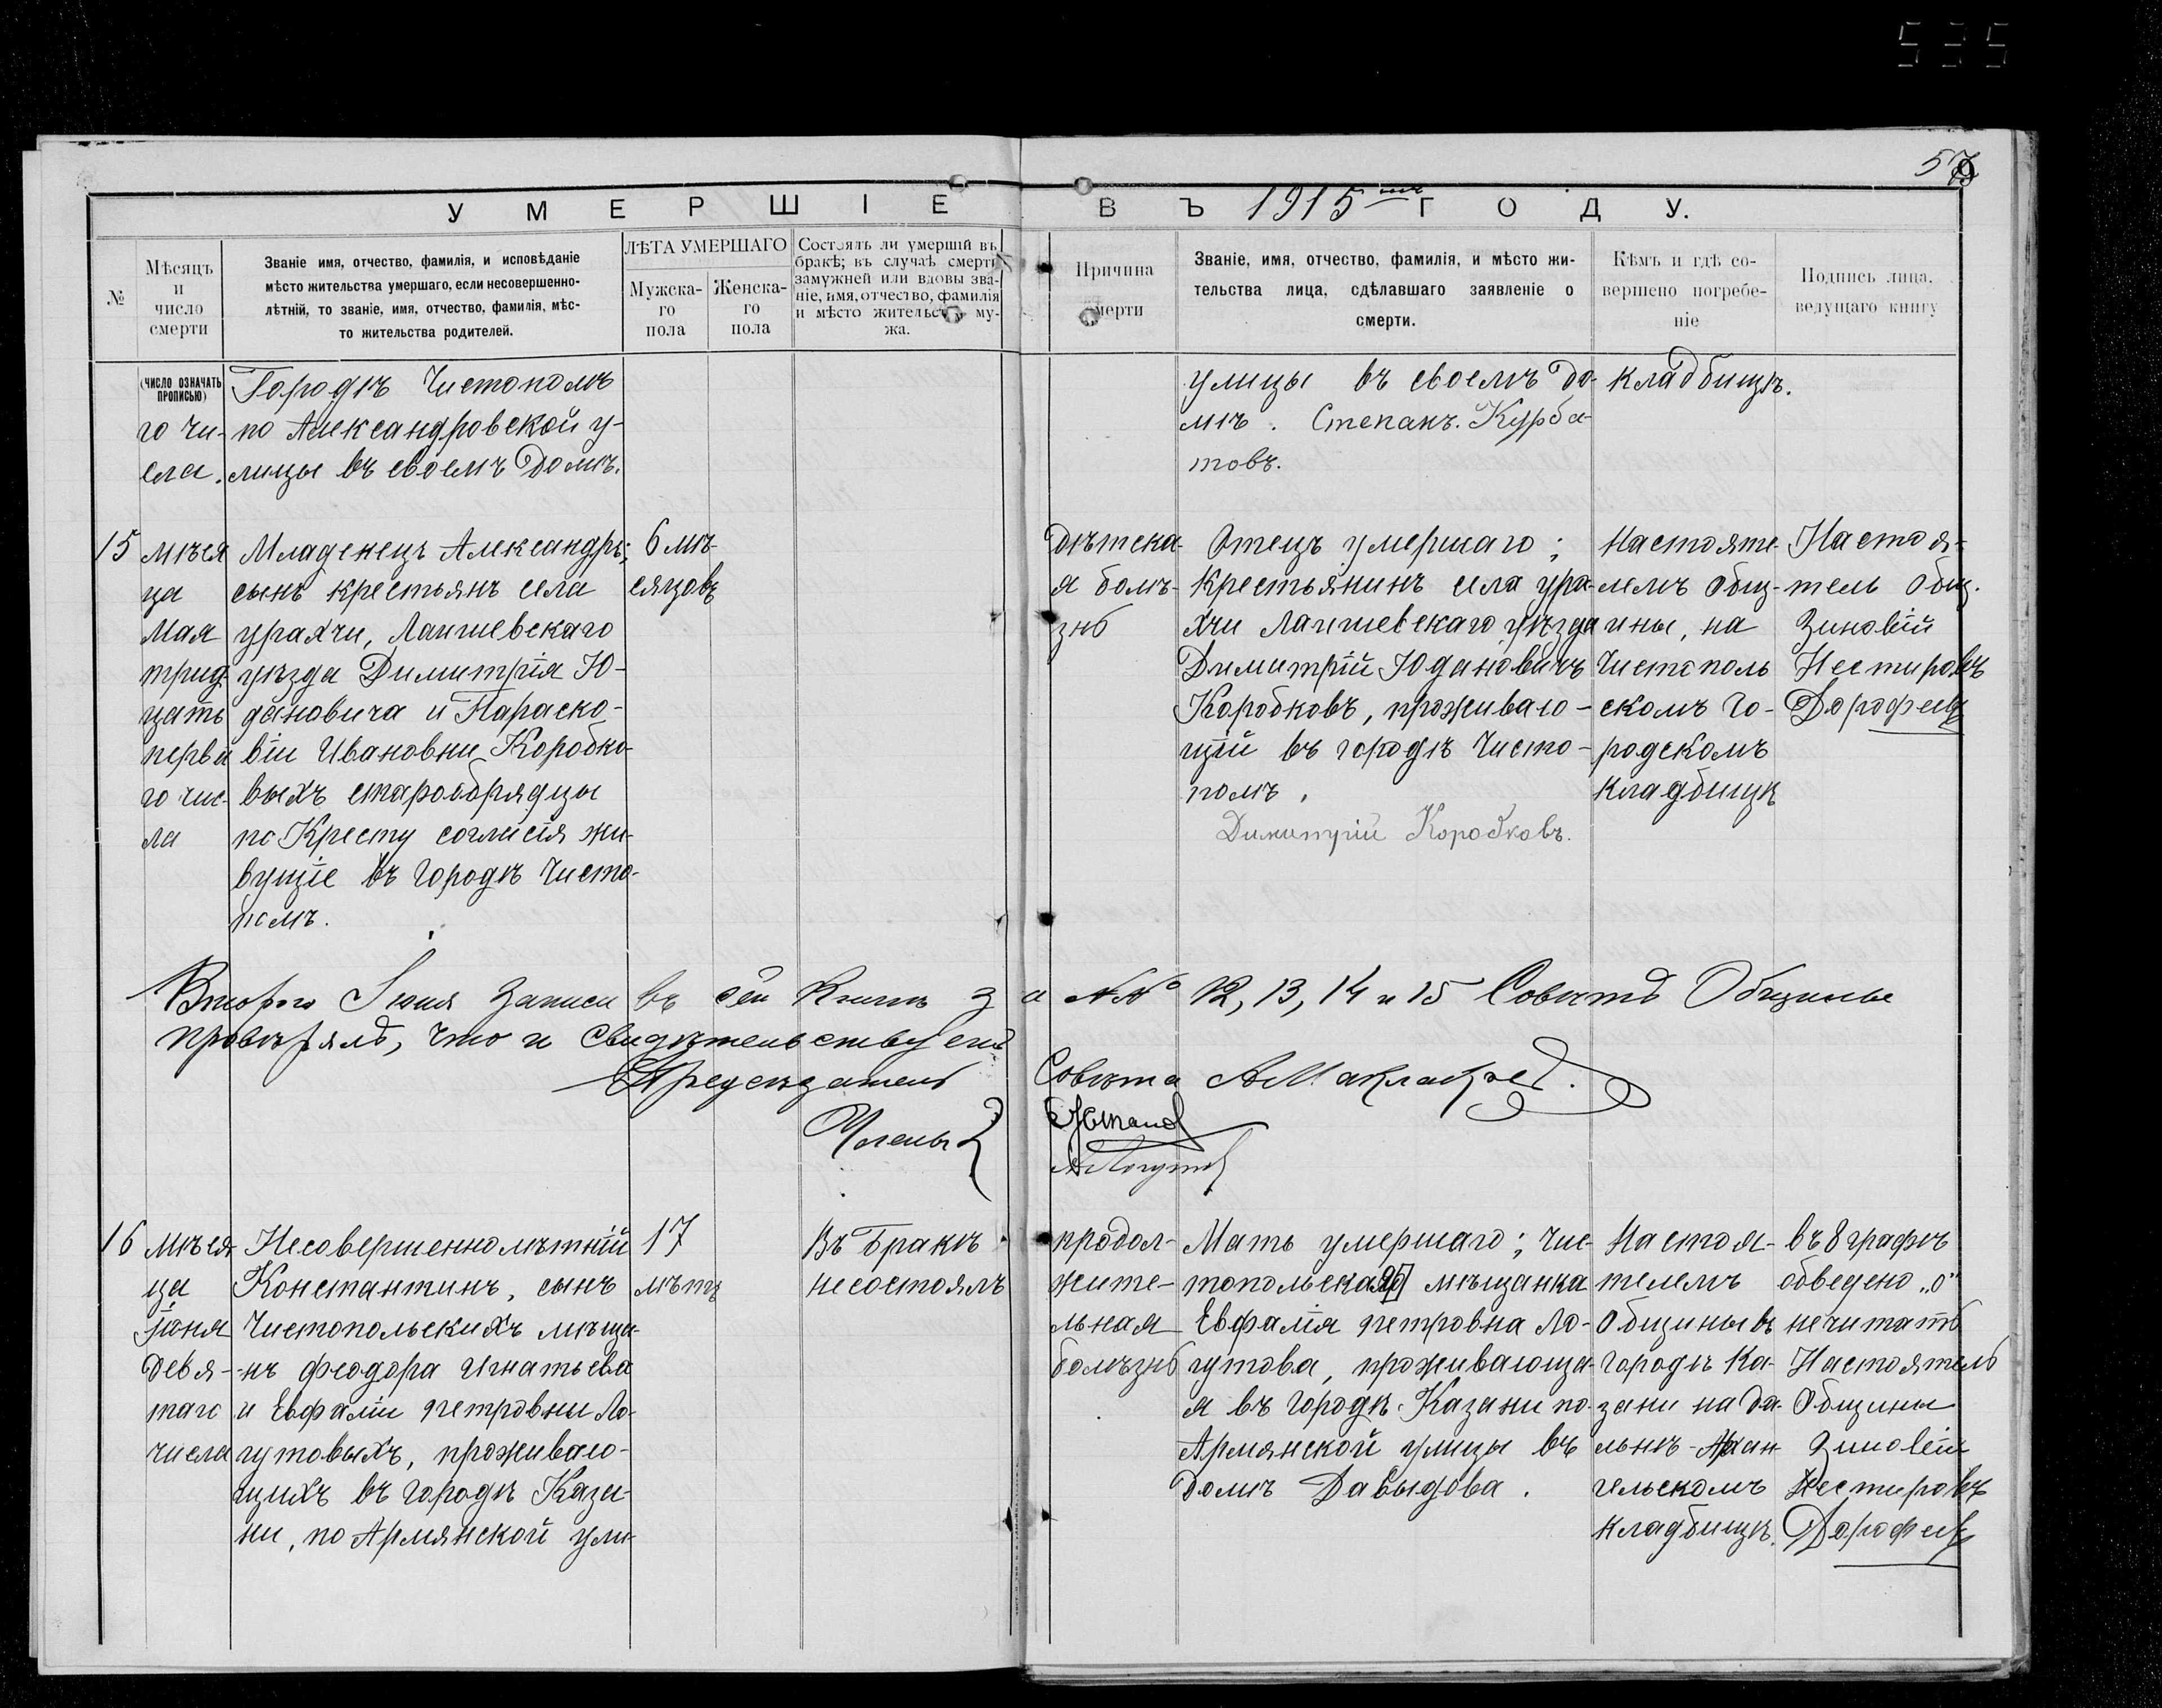 535
57
УМЕРШІЕ
ВЪ 1915мъ ГОДУ.
№
Мѣсяцъ
и
число
смерти
Званіе имя, отчество, фамилія, и исповѣданіе
мѣсто жительства умершаго, если несовершенно-
лѣтній, то званіе, имя, отчество, фамилія, мѣс-
то жительства родителей.
ЛѢТА УМЕРШАГО
Мужска-
го
пола
Женска-
го
пола
Состоялъ ли умершій въ
бракѣ; въ случаѣ смерти
замужней или вдовы зва-
ніе, имя, отчество, фамилія
и мѣсто жительства му-
жа.
Причина
смерти
Званіе, имя, отчество, фамилія, и мѣсто жи-
тельства лица, сдѣлавшаго заявленіе о
смерти.
Кѣмъ и гдѣ со-
вершено погребе-
ніе
Подпись лица.
ведущаго книгу
(ЧИСЛО ОЗНАЧАТЬ
ПРОПИСЬЮ)
го чи-
сла.
Городѣ Чистополѣ
по Александровской у-
лицы въ своемъ домѣ.
улицы въ своемъ до-
мѣ. Степанъ. Курба-
товъ.
кладбищѣ.
15
мѣся
ца
Мая
трид
цать
перва
го чис-
ла
Младенецъ Александръ;
сынъ крестьянъ села
урахчи, Лаишевскаго
уѣзда Димитрія Ю-
дановича и Параско-
віи Ивановны Коробко-
выхъ старообрядцы
по Кресту согласія жи-
вущіе въ Городѣ Чисто-
полѣ.
6 мѣ-
сяцовъ
дѣтска-
я болѣ-
знь
Отецъ умершаго;
крестьянинъ села ура-
хчи Лаишевскаго уѣзда
Димитрій Юдановичъ
Коробковъ, проживаю-
щій въ городѣ Чисто-
полѣ,
Димитрій Коробковъ.
Настояте-
лемъ общ-
ины, на
Чистополь
скомъ Го-
родскомъ
кладбищѣ
Настоя-
тель общ.
Зиновій
Нестировъ
Дорофеевъ
Второго Іюня записи въ сей Книгѣ за №№ 12, 13, 14 и 15 Совѣтъ Общины
провѣрялъ, что и свидѣтельствуетъ
Предсѣдатель Совѣта
Члены
16
мѣся
ца
іюня
девя-
таго
числа
Несовершеннолѣтній
Константинъ, сынъ
Чистопольскихъ мѣща-
нъ феодора Игнатьева
и Евфаліи петровны Ло-
гутовыхъ, проживаю-
щихъ въ городѣ Каза-
ни, по Армянской ули-
17
лѣтъ
Въ Бракѣ
несостоялъ
продол-
жите-
льная
болѣзнь
Мать умершаго; Чис-
топольская мѣщанка
Евфалія петровна Ло-
гутова, проживающа-
я въ городѣ Казани по-
Армянской улицы въ
домѣ Давыдова.
Настоя-
телемъ
Общины въ
городѣ Ка-
зани на да-
льнѣ-Архан-
гельскомъ
кладбищѣ.
въ 8 графѣ
обведено „о"
нечитать
Настоятель
Общины
Зиновій
Нестировъ
Дорофеевъ